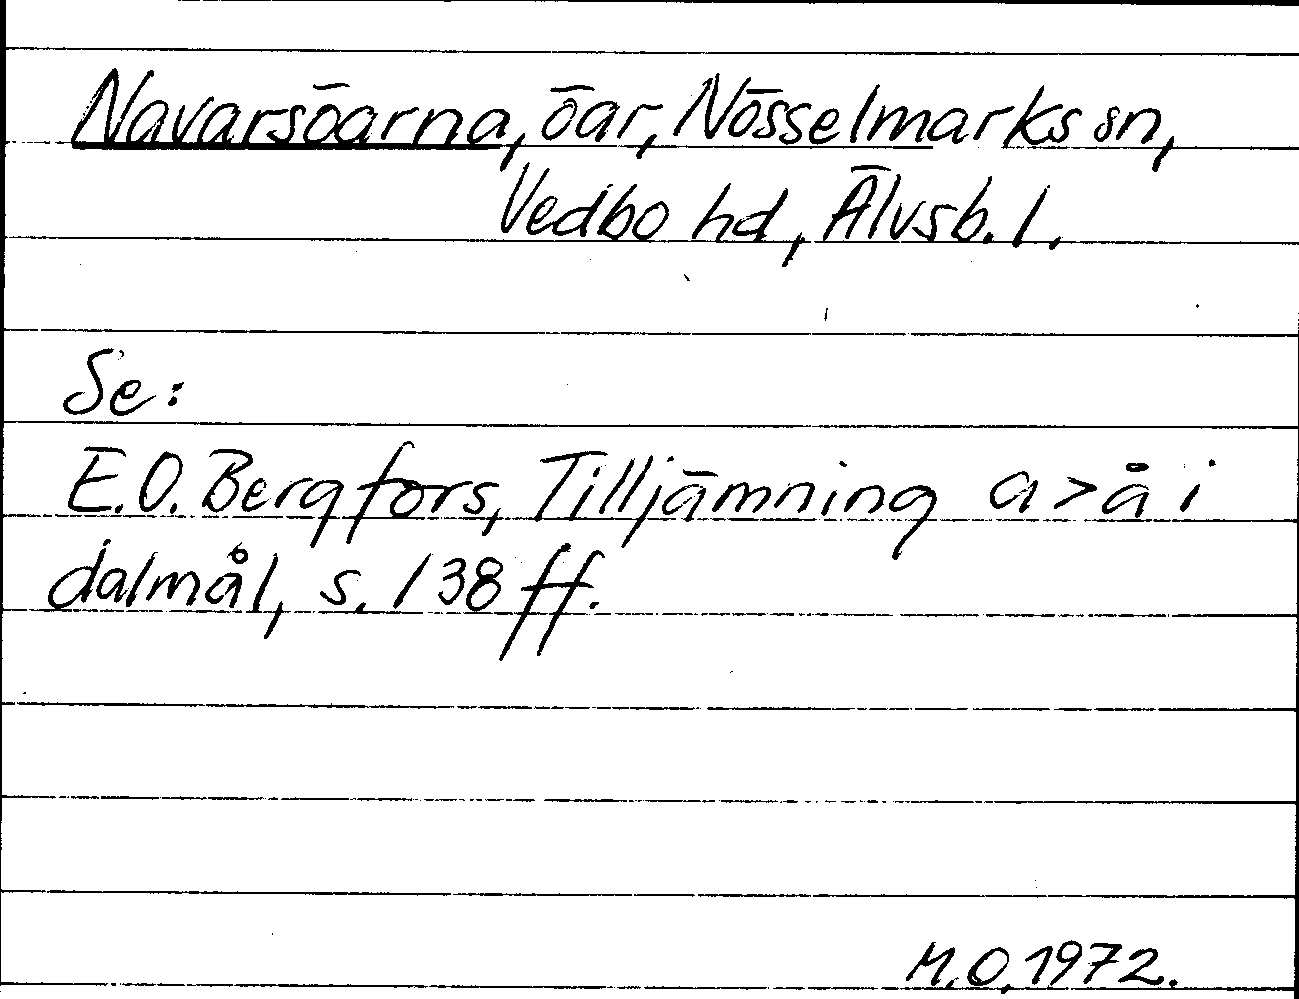 Navarsöarna, öar, Nösselmarks sn,
Vedbo hd, Älvsb. l.
Se:
E.O. Bergfors, Tilljämning a > å i
dalmål, s. 138 ff.
M.O. 1972.